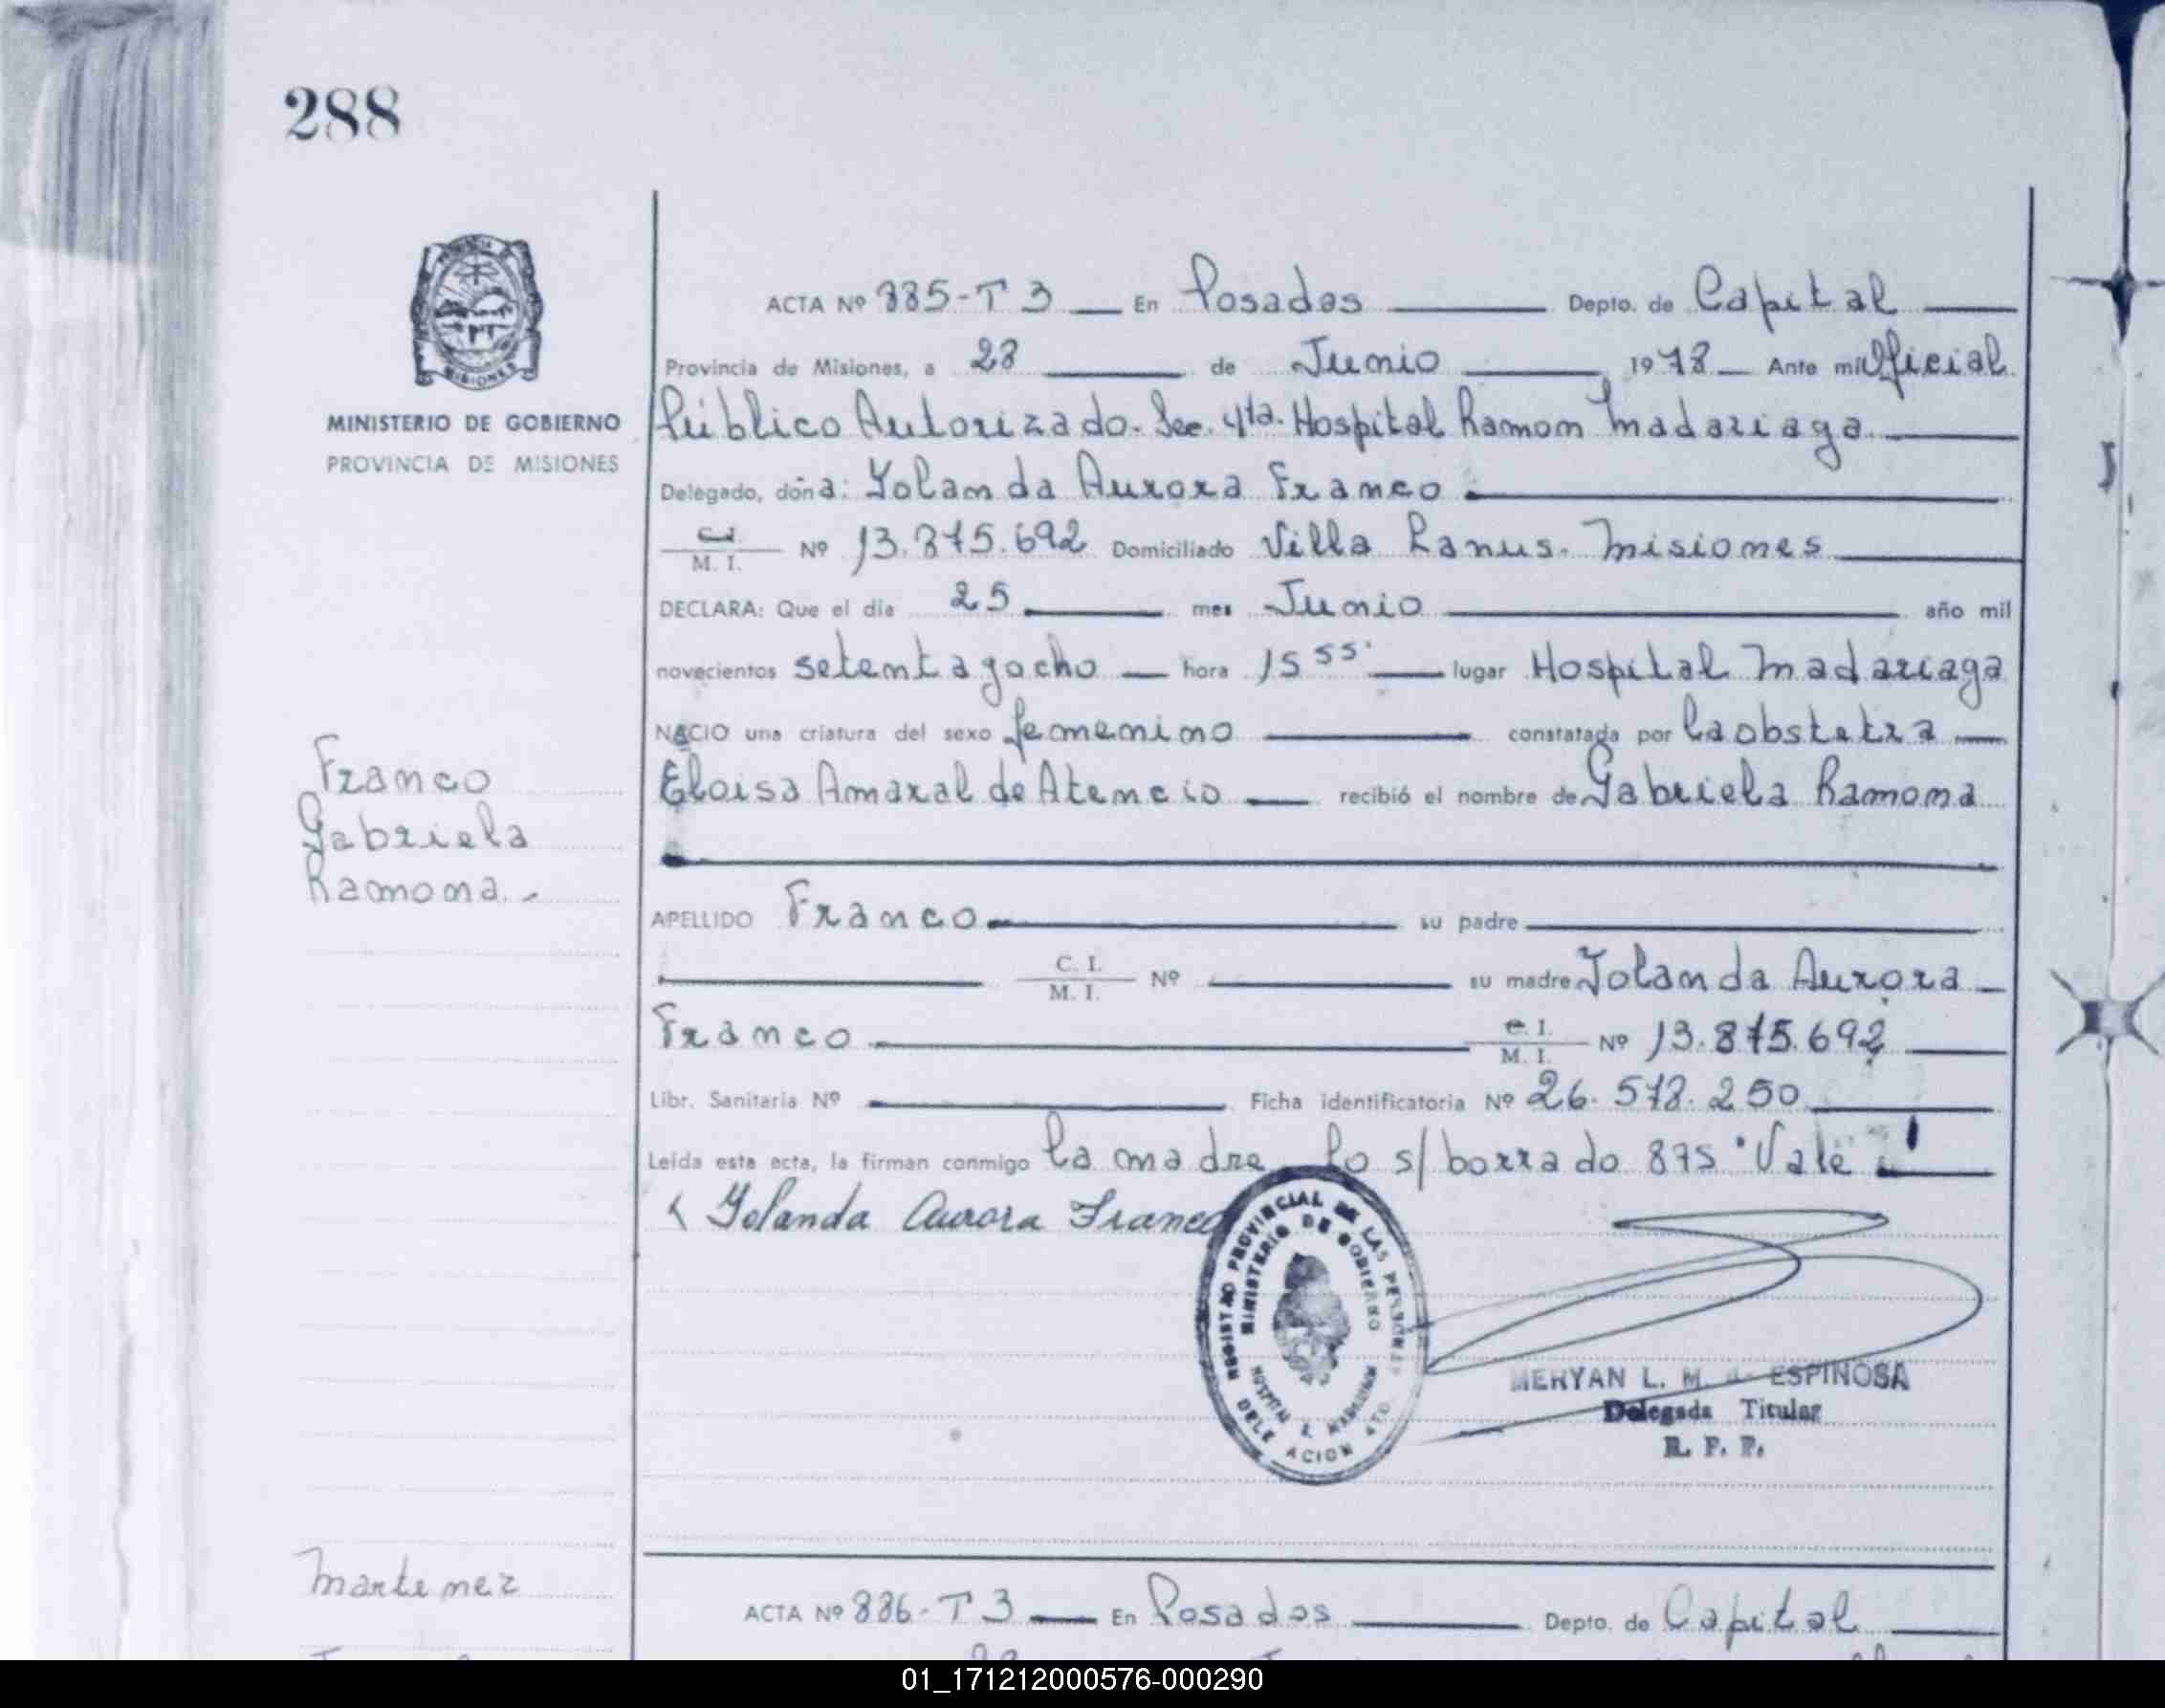 288
MINISTERIO DE GOBIERNO
PROVINCIA DE MISIONES
ACTA Nº 885-T 3 En Posadas Depto. de Capital
Provincia de Misiones, a 28 de Junio 1978 Ante mi Oficial
Público Autorizado. Sec. 4ta. Hospital Ramon Madariaga.
Delegado, doña: Yolanda Aurora Franco
M. I. Nº 13.875.692 Domiciliado Villa Lanus. Misiones
DECLARA: Que el día 25 mes Junio año mil
novecientos setenta y ocho hora 15 55' lugar Hospital Madariaga
NACIO una criatura del sexo femenino constatada por la obstetra
Franco
Gabriela
Ramona.-
Eloisa Amaral de Atencio recibió el nombre de Gabriela Ramona
APELLIDO Franco su padre
C. I. M. I. Nº su madre Yolanda Aurora
Franco C. I. M. I. Nº 13.875.692
Libr. Sanitaria Nº Ficha identificatoria Nº 26.578.250
Leída esta acta, la firman conmigo la madre lo s/ borrado 875 "Vale"
Yolanda Aurora Franco
REGISTRO PROVINCIAL DE LAS PERSONAS
MINISTERIO DE GOBIERNO
HOSPITAL R. MADARIAGA
DELEGACION 4TA.
MERYAN L. M. de ESPINOSA
Delegada Titular
R. P. P.
Martinez
ACTA Nº 886-T 3 En Posadas Depto. de Capital
01_171212000576-000290